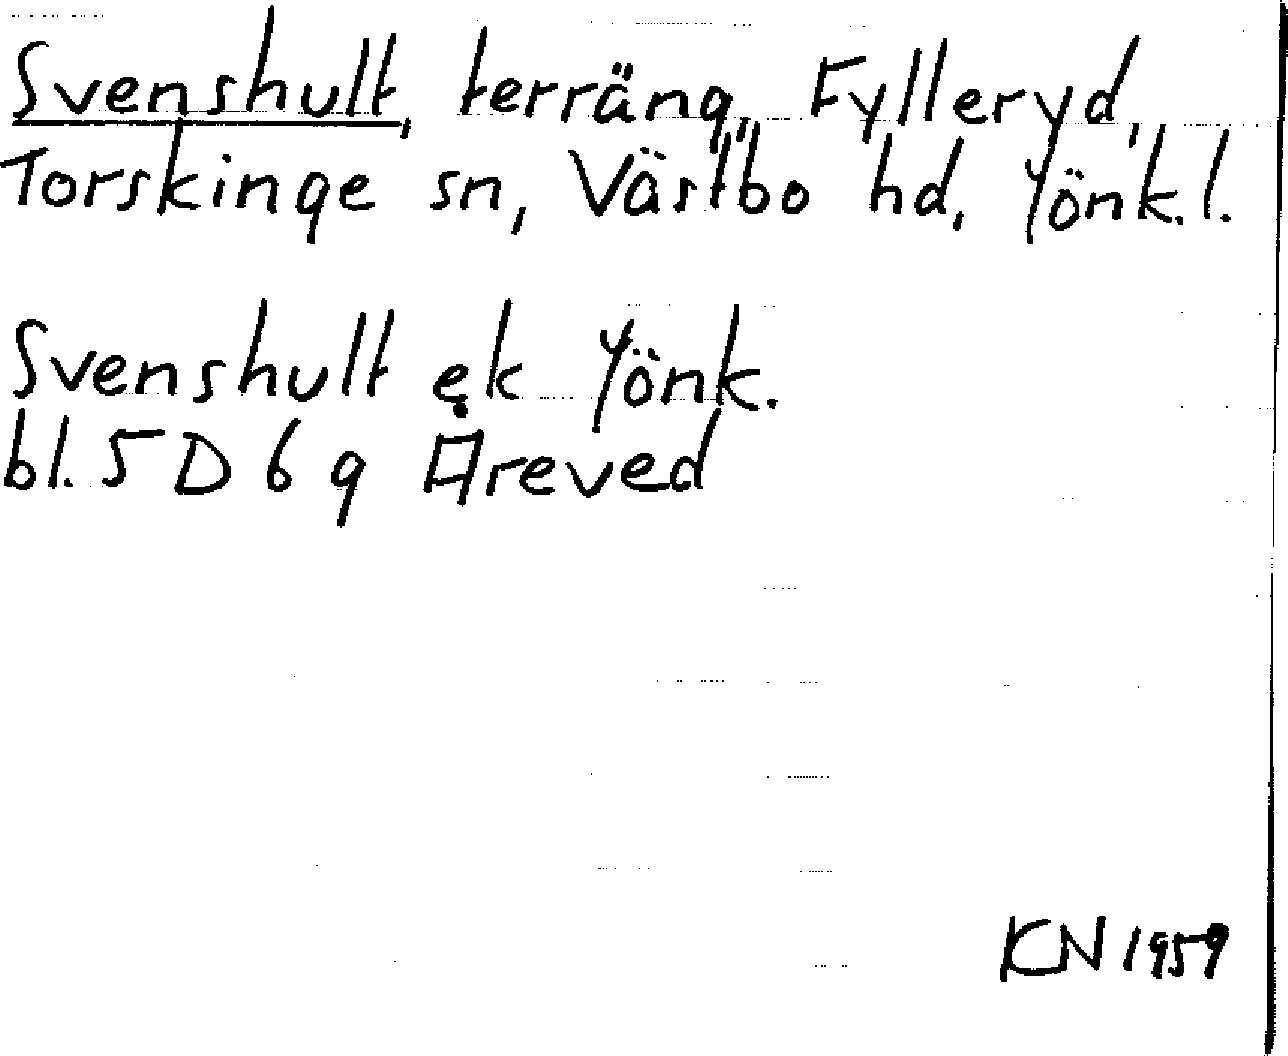 Svenshult, terräng, Fylleryd,
Torskinge sn, Västbo hd, Jönk.l.
Svenshult ek Jönk.
bl. 5 D 6 g Åreved
KN 1959